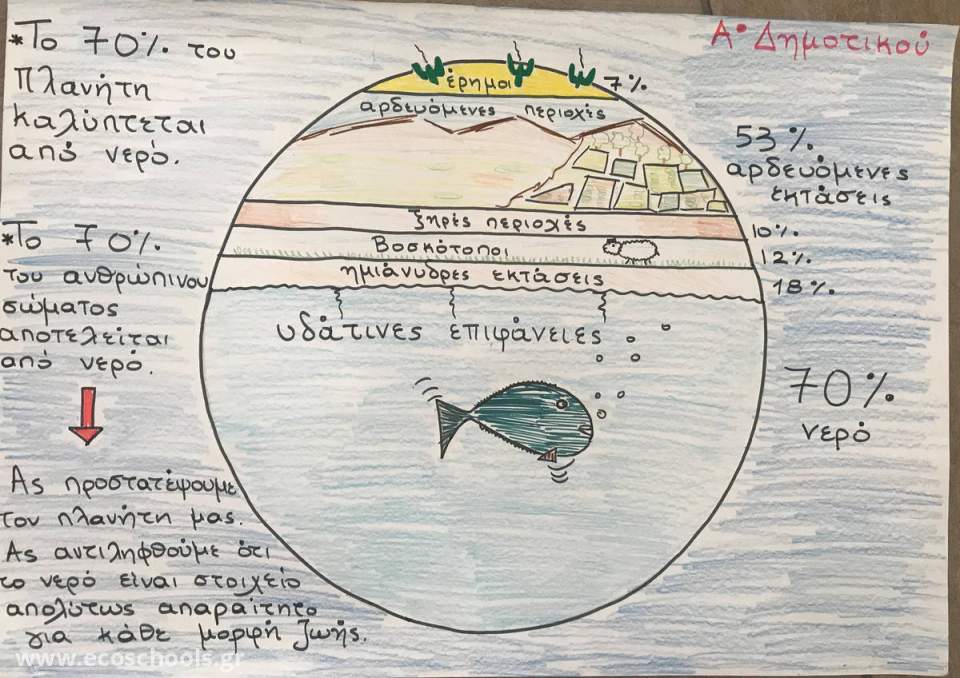 *Το 70% του
πλανήτη
καλύπτεται
από νερό.
*Το 70%
του ανθρώπινου
σώματος
αποτελείται
από νερό.
Ας προστατέψουμε
τον πλανήτη μας.
Ας αντιληφθούμε ότι
το νερό είναι στοιχείο
απολύτως απαραίτητο
για κάθε μορφή ζωής.
www.ecoschools.gr
έρημοι
αρδευόμενες περιοχές
ξηρές περιοχές
Βοσκότοποι
ημιάνυδρες εκτάσεις
υδάτινες επιφάνειες
Α' Δημοτικού
7%
53%
αρδευόμενες
εκτάσεις
10%
12%
18%
70%
νερό